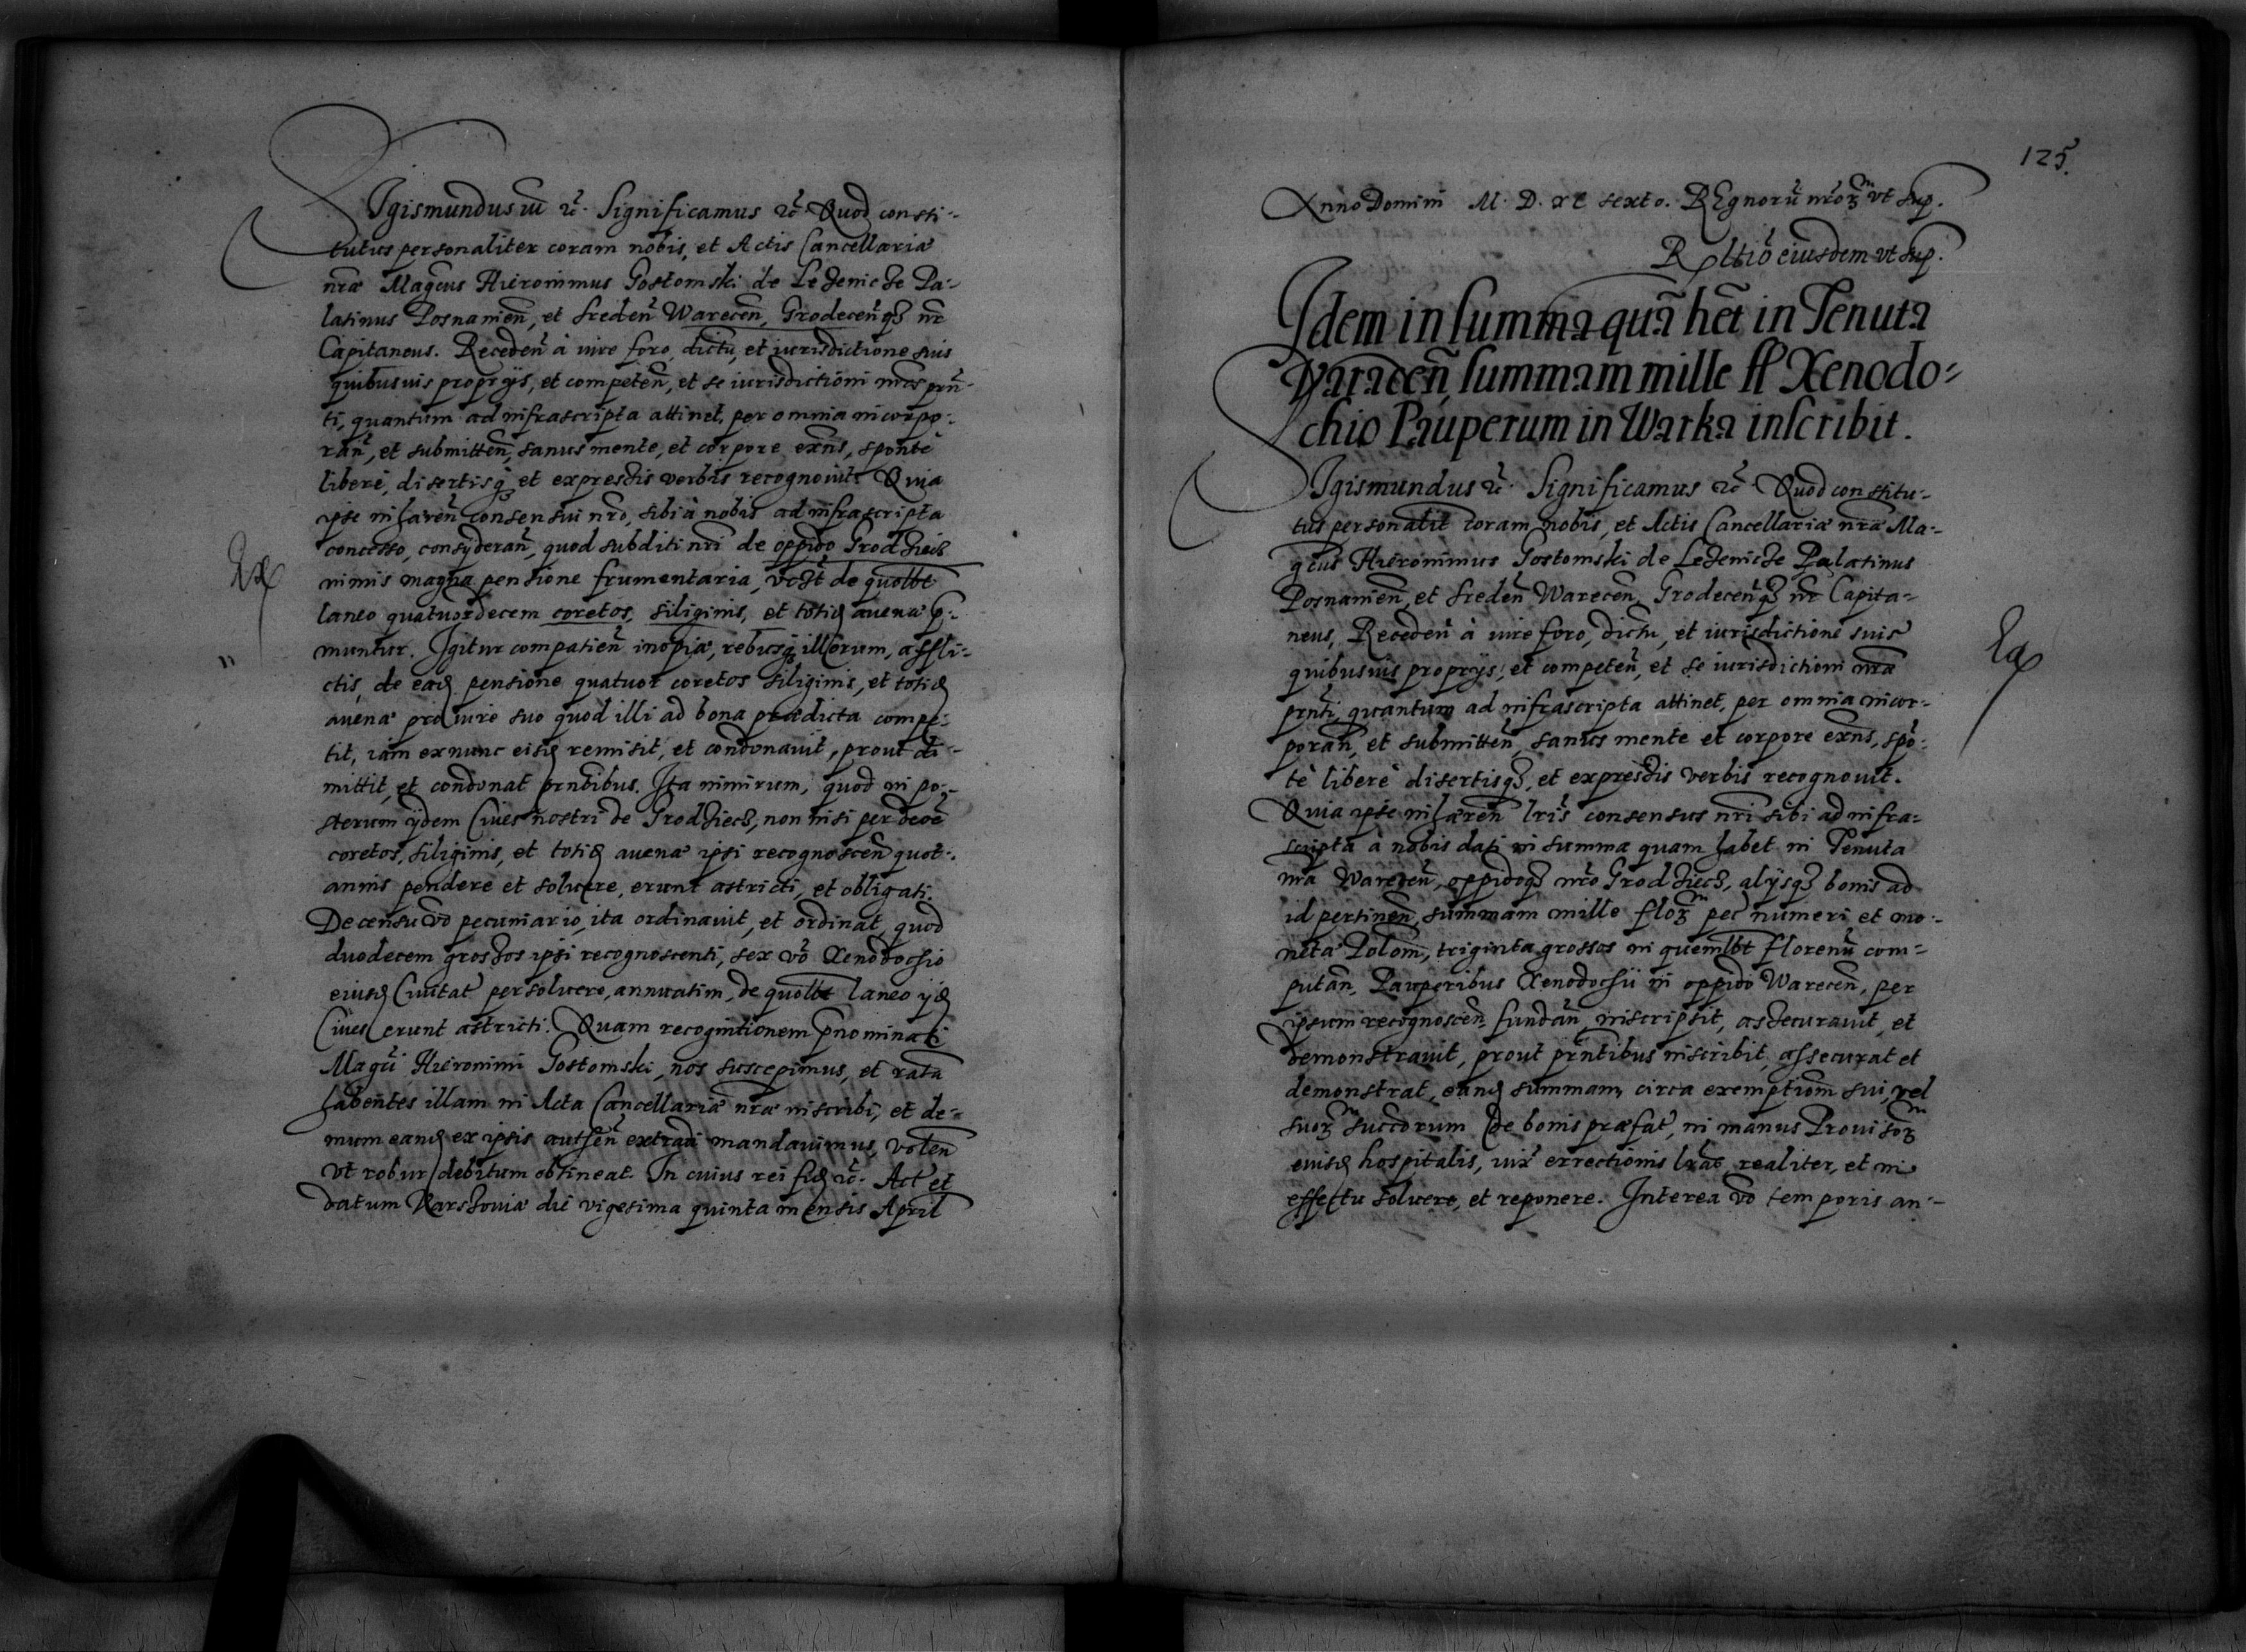 Sigismundus III etc. Significamus etc. Quod consti-
tutus personaliter coram nobis, et Actis Cancellariæ
nr̃æ Magcus Hieronimus Gostomski de Lezenicze Pa-
latinus Posnanien̄, et Sreden̄ Warecen̄, Grodecen̄q3 nr̃
Capitaneus. Receden̄ à iure foro, dictu, et iurisdictione suis
quibusuis proprijs, et competen̄, et se iurisdictioni nr̃æ prn̄-
ti, quantum ad infrascripta attinet, per omnia incorpo-
ran̄, et submitten̄, sanus mente, et corpore exn̄s, sponte
libere, disertisq3 et expressis verbis recognouit. Quia
ipse inhæren̄ consensui nr̃o, sibi à nobis ad infrascripta
concesso, consyderan̄, quod subditi nr̃i de oppido Grodziecz
nimis magna pensione frumentaria, vczt de quolbt
laneo quatuordecem coretos, siliginis, et totid auenæ p̱-
muntur. Igitur compatien̄ inopiæ, rebusq3 illorum, affli-
ctis, de ead pensione quatuor coretos siliginis, et totid
auenæ pro iure suo quod illi ad bona prædicta compe-
tit, iam exnunc eisd remisit, et condonauit, prout di-
mittit, et condonat prn̄tibus. Ita nimirum, quod in po-
sterum ijdem Ciues nostri de Grodziecz, non nisi per dece
coretos, siliginis, et totid auenæ ipsi recognoscen̄ quot-
annis pendere et soluere, erunt astricti, et obligati.
De censu vo pecuniario, ita ordinauit, et ordinat, quod
duodecem grossos ipsi recognoscenti, sex vo Xenodochio
eiusd Ciuitat persoluere, annuatim, de quolbt laneo ijd
Ciues erunt astricti. Quam recognitionem p̄nominati
Magci Hieronimi Gostomski, nos suscepimus, et rata
habentes illam in Acta Cancellariæ nr̃æ inscribi, et de-
mum eand ex ipsis authen̄ extradi mandauimus, volen̄
vt robur debitum obtineat. In cuius rei fid etc. Act et
datum Varsouiæ die vigesima quinta mensis April
125.
Anno Domini M. D. XC sexto. REgnorū nr̃or3 vt sup.
Rltio eiusdem vt sup.
Idem in summa quā hēt in Tenuta
Varacen̄, summam mille fl Xenodo-
chio Pauperum in Warka inscribit.
Sigismundus etc. Significamus etc. Quod constitu-
tus personalit coram nobis, et Actis Cancellariæ nr̃æ Ma-
gcus Hieronimus Gostomski de Lezenicze Palatinus
Posnanien̄, et Sreden̄ Warecen̄, Grodecen̄q3 nr̃ Capita-
neus, Receden̄ à iure foro, dictu, et iurisdictione suis
quibusuis proprijs, et competen̄, et se iurisdictioni nr̃æ
prn̄ti, quantum ad infrascripta attinet, per omnia incor-
poran̄, et submitten̄, sanus mente et corpore exn̄s, spō-
te libere disertisq3, et expressis verbis recognouit.
Quia ipse inhæren̄ lr̃is consensus nr̃i sibi ad infra-
scripta à nobis dati in summa quam habet in Tenuta
nr̃a Warecen̄, oppidoq3 nr̃o Grodziecz, alijsq3 bonis ad
id pertinen̄, summam mille flor3 pec numeri et mo-
netæ Polon̄, triginta grossos in quemlbt florenū com-
putan̄, Pauperibus Xenodochii in oppido Warecen̄, per
ipsum recognoscen̄ fundan̄, inscripsit, assecurauit, et
demonstrauit, prout prn̄tibus inscribit, assecurat et
demonstrat, eand summam, circa exemptiom sui, vel
suor3 succorum de bonis præfat, in manus Prouisor3
euisd hospitalis, iux errectionis lr̃as, realiter, et in
effectu soluere, et reponere. Interea vo temporis an-